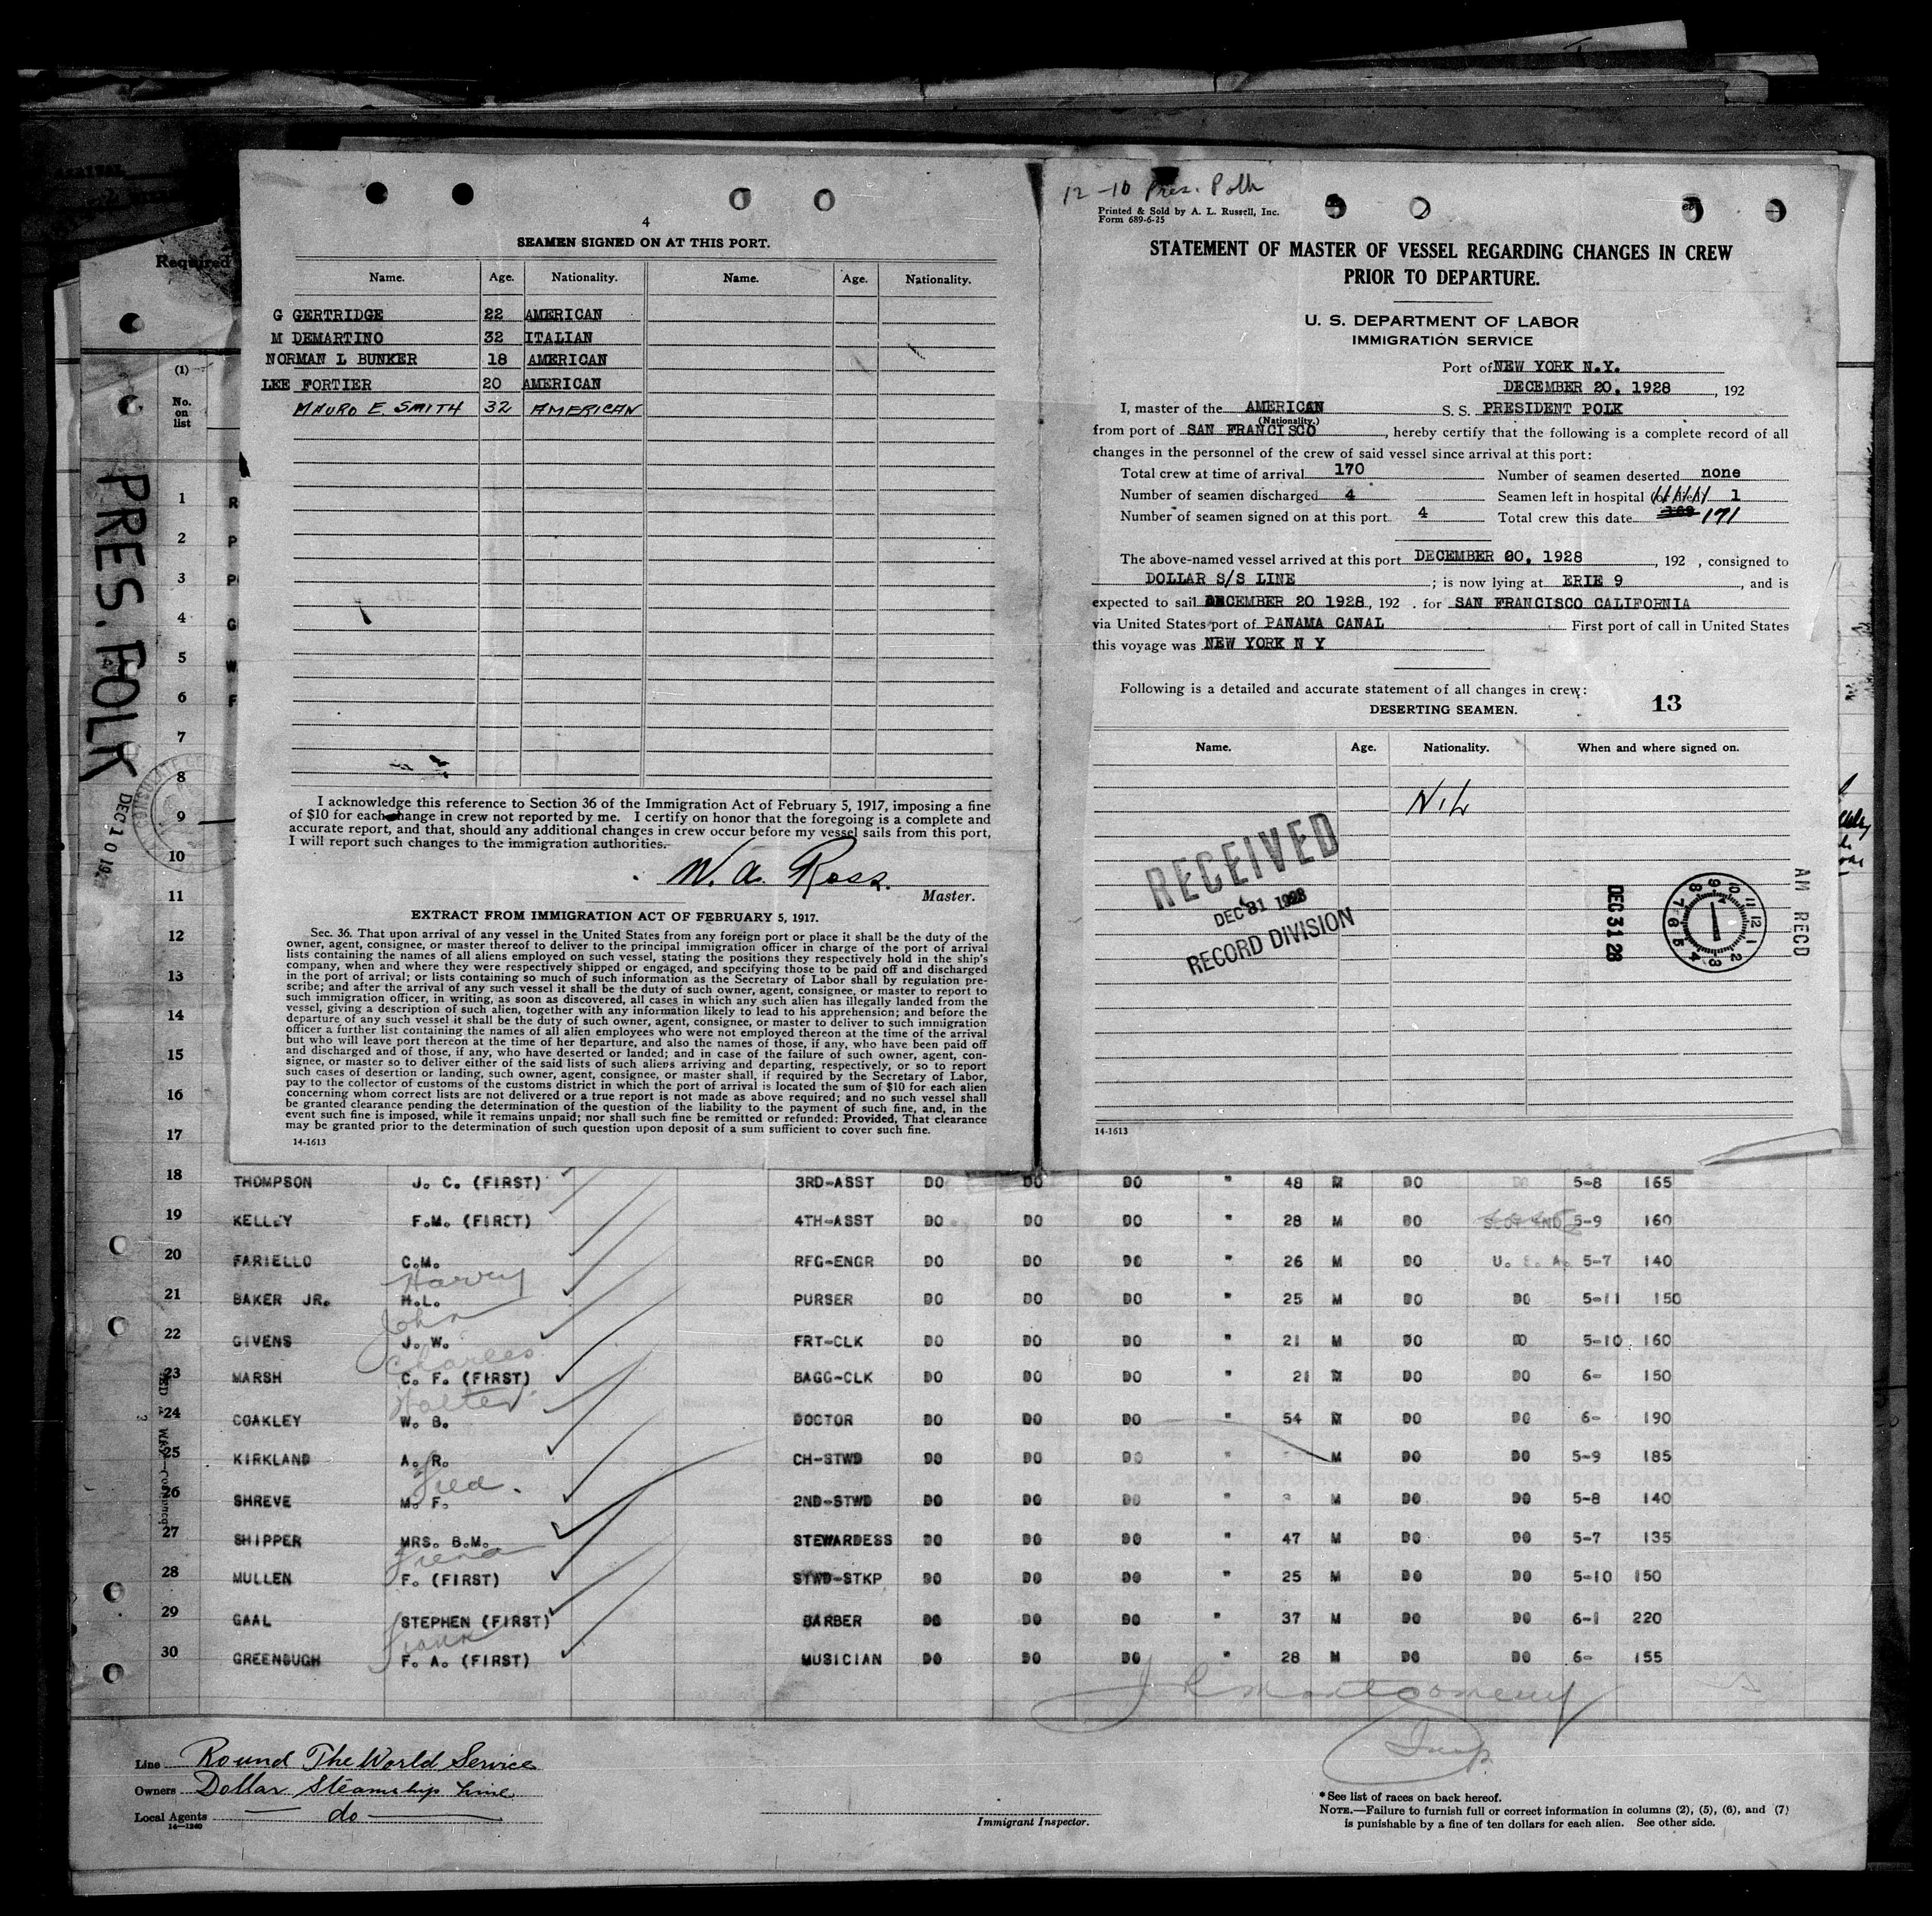 Required
(1)
No.
on
list
PRES. POLK
DEC 10 192
4
SEAMEN SIGNED ON AT THIS PORT.
Name. Age. Nationality. Name. Age. Nationality.
G GERTRIDGE 22 AMERICAN
M DEMARTINO 32 ITALIAN
NORMAN L BUNKER 18 AMERICAN
LEE FORTIER 20 AMERICAN
MAURO E. SMITH 32 AMERICAN
I acknowledge this reference to Section 36 of the Immigration Act of February 5, 1917, imposing a fine
of $10 for each change in crew not reported by me. I certify on honor that the foregoing is a complete and
accurate report, and that, should any additional changes in crew occur before my vessel sails from this port,
I will report such changes to the immigration authorities.
W. A. Ross.
Master.
EXTRACT FROM IMMIGRATION ACT OF FEBRUARY 5, 1917.
Sec. 36. That upon arrival of any vessel in the United States from any foreign port or place it shall be the duty of the
owner, agent, consignee, or master thereof to deliver to the principal immigration officer in charge of the port of arrival
lists containing the names of all aliens employed on such vessel, stating the positions they respectively hold in the ship's
company, when and where they were respectively shipped or engaged, and specifying those to be paid off and discharged
in the port of arrival; or lists containing so much of such information as the Secretary of Labor shall by regulation pre-
scribe; and after the arrival of any such vessel it shall be the duty of such owner, agent, consignee, or master to report to
such immigration officer, in writing, as soon as discovered, all cases in which any such alien has illegally landed from the
vessel, giving a description of such alien, together with any information likely to lead to his apprehension; and before the
departure of any such vessel it shall be the duty of such owner, agent, consignee, or master to deliver to such immigration
officer a further list containing the names of all alien employees who were not employed thereon at the time of the arrival
but who will leave port thereon at the time of her departure, and also the names of those, if any, who have been paid off
and discharged and of those, if any, who have deserted or landed; and in case of the failure of such owner, agent, con-
signee, or master so to deliver either of the said lists of such aliens arriving and departing, respectively, or so to report
such cases of desertion or landing, such owner, agent, consignee, or master shall, if required by the Secretary of Labor,
pay to the collector of customs of the customs district in which the port of arrival is located the sum of $10 for each alien
concerning whom correct lists are not delivered or a true report is not made as above required; and no such vessel shall
be granted clearance pending the determination of the question of the liability to the payment of such fine, and, in the
event such fine is imposed, while it remains unpaid; nor shall such fine be remitted or refunded: Provided, That clearance
may be granted prior to the determination of such question upon deposit of a sum sufficient to cover such fine.
14-1613
12-10 Pres. Polk
Printed & Sold by A. L. Russell, Inc.
Form 689-6-25
STATEMENT OF MASTER OF VESSEL REGARDING CHANGES IN CREW
PRIOR TO DEPARTURE.
U. S. DEPARTMENT OF LABOR
IMMIGRATION SERVICE
Port of NEW YORK N.Y.
DECEMBER 20, 1928, 192
I, master of the AMERICAN S. S. PRESIDENT POLK
(Nationality.)
from port of SAN FRANCISCO, hereby certify that the following is a complete record of all
changes in the personnel of the crew of said vessel since arrival at this port:
Total crew at time of arrival 170 Number of seamen deserted none
Number of seamen discharged 4 Seamen left in hospital 1
Number of seamen signed on at this port 4 Total crew this date 169 171
The above-named vessel arrived at this port DECEMBER 20, 1928, 192 , consigned to
DOLLAR S/S LINE; is now lying at ERIE 9, and is
expected to sail DECEMBER 20 1928, 192 . for SAN FRANCISCO CALIFORNIA
via United States port of PANAMA CANAL First port of call in United States
this voyage was NEW YORK N Y
Following is a detailed and accurate statement of all changes in crew:
DESERTING SEAMEN. 13
Name. Age. Nationality. When and where signed on.
NIL
RECEIVED
DEC 31 1928
RECORD DIVISION
DEC 31 28
AM RECD
14-1613
1
2
3
4
5
6
7
8
9
10
11
12
13
14
15
16
17
18 THOMPSON J. C. (FIRST) 3RD-ASST DO DO DO " 48 M DO DO 5-8 165
19 KELLEY F.M. (FIRST) 4TH-ASST DO DO DO " 28 M DO SCOTLAND 5-9 160
20 FARIELLO C.M. RFG-ENGR DO DO DO " 26 M DO U. S. A. 5-7 140
Harry
21 BAKER JR. H.L. PURSER DO DO DO " 25 M DO DO 5-11 150
John
22 GIVENS J. W. FRT-CLK DO DO DO " 21 M DO DO 5-10 160
Charles
23 MARSH C. F. (FIRST) BAGG-CLK DO DO DO " 21 M DO DO 6- 150
Walter
24 COAKLEY W. B. DOCTOR DO DO DO " 54 M DO DO 6- 190
25 KIRKLAND A. R. CH-STWD DO DO DO " M DO DO 5-9 185
26 SHREVE M. F. 2ND-STWD DO DO DO " M DO DO 5-8 140
27 SHIPPER MRS. B.M. STEWARDESS DO DO DO " 47 M DO DO 5-7 135
28 MULLEN F. (FIRST) STWD-STKP DO DO DO " 25 M DO DO 5-10 150
29 GAAL STEPHEN (FIRST) BARBER DO DO DO " 37 M DO DO 6-1 220
Frank
30 GREENOUGH F. A. (FIRST) MUSICIAN DO DO DO " 28 M DO DO 6- 155
J R Montgomery
Insp.
Line Round The World Service
Owners Dollar Steamship Line
Local Agents do
14-1240
Immigrant Inspector.
*See list of races on back hereof.
NOTE.—Failure to furnish full or correct information in columns (2), (5), (6), and (7)
is punishable by a fine of ten dollars for each alien. See other side.